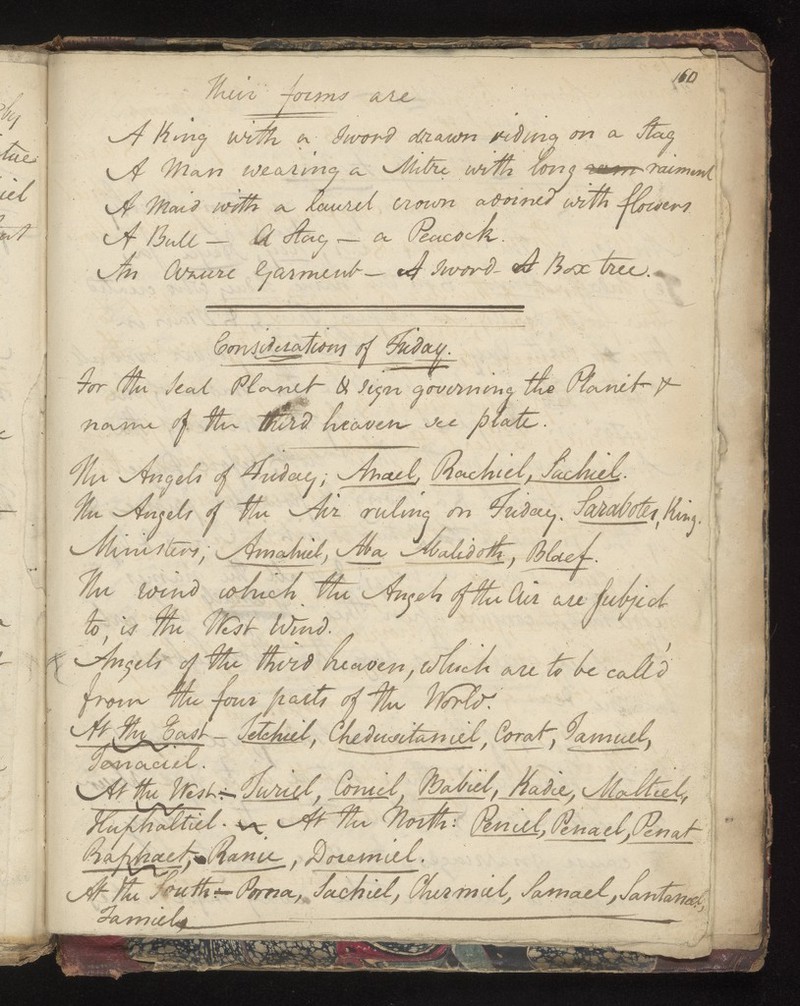 60
Their forms are
A King with a Sword drawn riding on a Stag
A Man wearing a Mitre with long raiment
A Maid with a laurel crown adorned with flowers
A Bull – A Stag – a Peacock.
An Azure Garment – A Sword – A Box tree.
Considerations of Friday.
For the Seal Planet & sign governing the Planet &
name of the third heaven see plate.
The Angels of Friday; Anael, Rachiel, Sachiel.
The Angels of the Air ruling on Friday. Sarabotes, King.
Ministers; Amahiel, Aba Abalidoth, Blaef.
The wind which the Angels of the Air are Subject
to, is the West Wind.
Angels of the third heaven, which are to be call'd
from the four parts of the World:
At the East – Setchiel, Chedusitaniel, Corat, Tamuel,
Tenaciel.
At the West:– Turiel, Coniel, Babiel, Kadie, Maltiel,
Huphaltiel. At the North: Peniel, Penael, Penat
Raphael, Ranie, Doremiel.
At the South:– Porna, Sachiel, Chermiel, Samael, Santanael,
Famiel